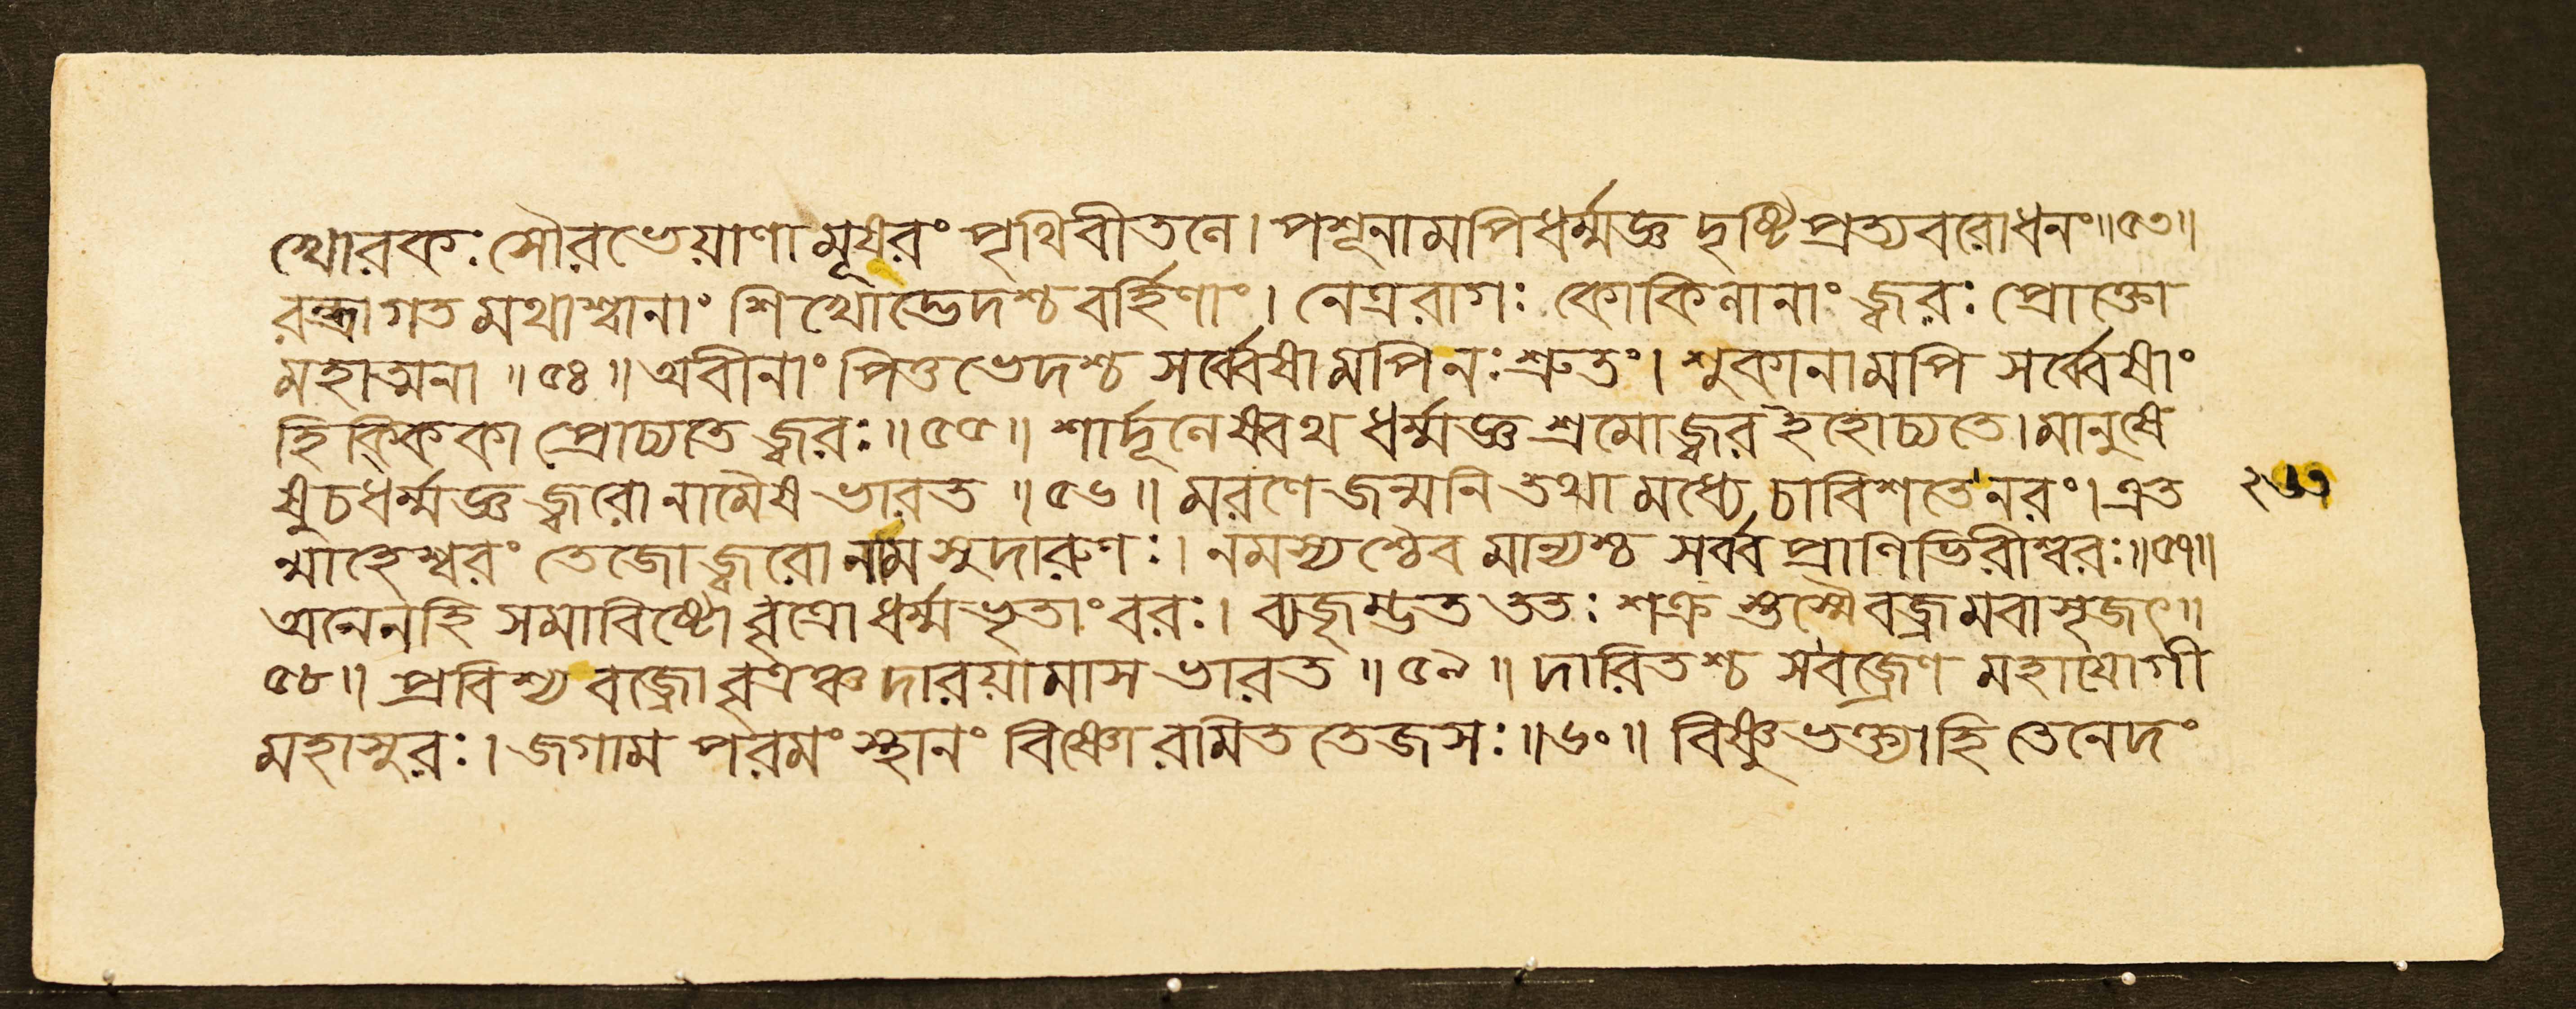 খোরকঃ সৌরভেয়াণামূষরং পৃথিবীতলে। পশূনামপিধর্ম্মজ্ঞ দৃষ্টিপ্রত্যবরোধনং॥৫৩॥
রন্ধ্রাগতমথাশ্বানাং শিখোদ্ভেদশ্চবর্হিণাং। নেত্ররাগঃ কোকিলানাং জ্বরঃ প্রোক্তো
মহাত্মনা॥৫৪॥ অবীনাং পিত্তভেদশ্চ সর্ব্বেষামপিনঃশ্রুতং। শুকানামপি সর্ব্বেষাং
হিক্কিকা প্রোচ্যতে জ্বরঃ॥৫৫॥ শার্দূলেষ্বথ ধর্ম্মজ্ঞ শ্রমোজ্বরইহোচ্যতে। মানুষে
ষুচধর্ম্মজ্ঞ জ্বরোনামৈষ ভারত॥৫৬॥ মরণেজন্মনিতথামধ্যে চাবিশতেনরং। এত
ন্মাহেশ্বরং তেজোজ্বরোনামসুদারুণঃ। নমস্যশ্চৈবমান্যশ্চ সর্ব্বপ্রাণিভিরীশ্বরঃ॥৫৭॥
অনেনহি সমাবিষ্টোবৃত্রোধর্ম্মভৃতাংবরঃ। ব্যজৃম্ভতততঃ শক্রস্তস্মৈবজ্রমবাসৃজৎ॥
৫৮॥ প্রবিশ্যবজ্রোবৃত্রঞ্চদারয়ামাস ভারত॥৫৯॥ দারিতশ্চ সবজ্রেণ মহাযোগী
মহাসুরঃ। জগাম পরমং স্থানং বিষ্ণোরমিততেজসঃ॥৬০॥ বিষ্ণুভক্ত্যাহি তেনেদং